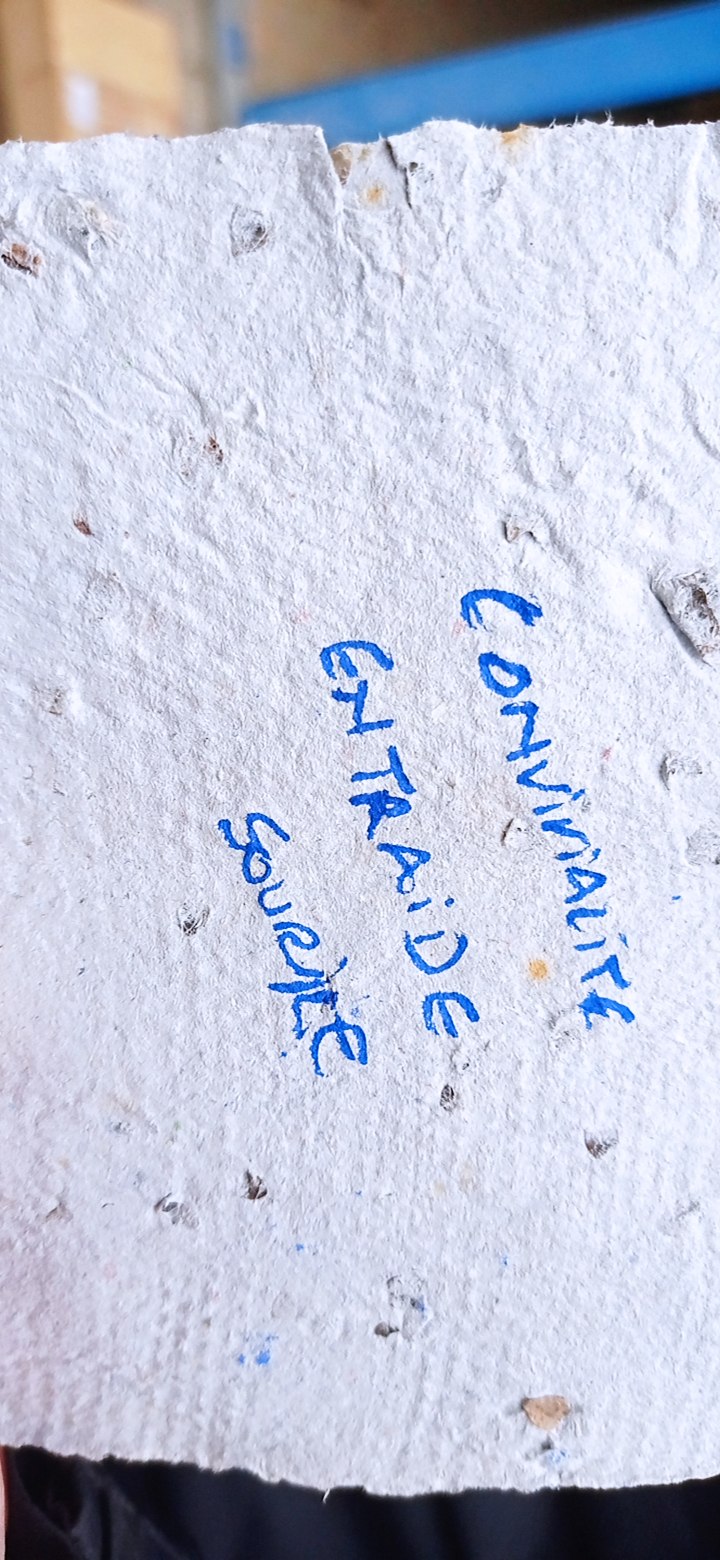 CONVIViALiTE
ENTRAiDE
SOURiRE